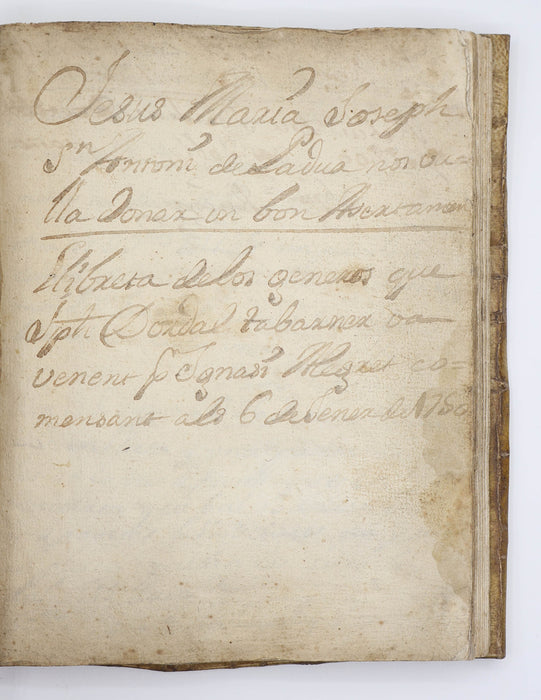 Jesus Maria Joseph
Sn Antoni de Padua nos vu-
lla Donar un bon Asertamen
Llibreta de los generos que
Jph Dordal tabarner va
venent pr Ignasi Alegret co=
mensant als 6 de Jener de 1780